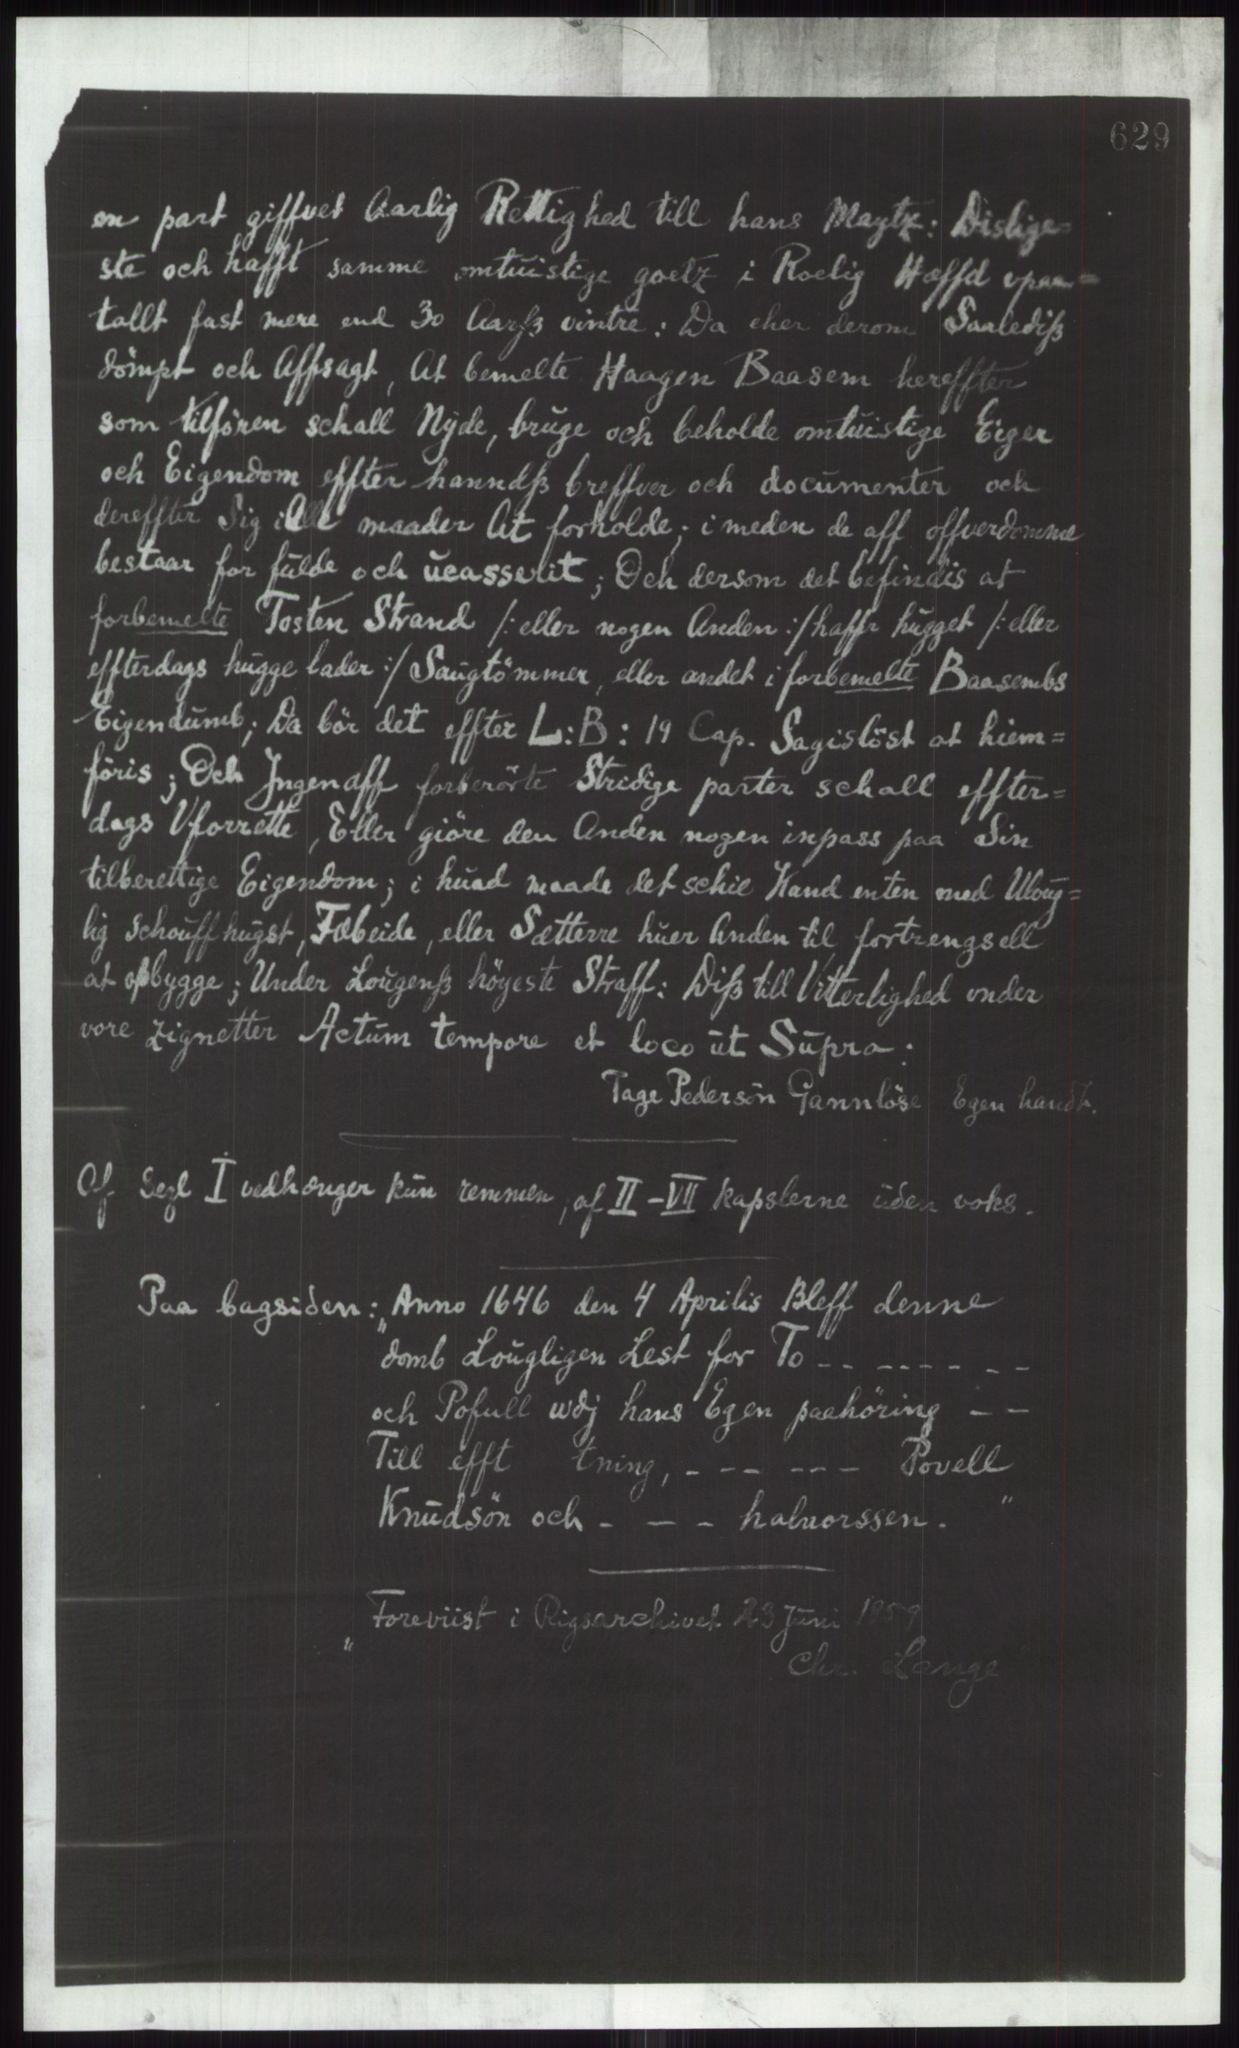 629
en part giffvet Aarlig Rettighed till hans Maytz: Dislige-
ste och hafft samme omtuistige goetz i Roelig Hæffd vpaa=
tallt fast mere end 30 Aarß vintre: Da eher derom Saalediß
dömpt och Affsagt, At bemelte Haagen Baasem hereffter
som tilfören schall Nÿde, bruge och beholde omtuistige Eiger
och Eigendom effter hanndß breffver och documenter och
dereffter Sig i Alle maader At forholde; i meden de aff offverdomme
bestaar for fulde och ucasserit; Och dersom det befindis at
forbemelte Tosten Strand /: eller nogen Anden :/ haffr hugget /: eller
effterdags hugge lader :/ Saugtömmer, eller andet i forbemelte Baasembs
Eigendumb; Da bör det effter L: B: 19 Cap. Sagislöst at hiem=
föris; Och Jngen aff forberörte Stridige parter schall effter=
dags Vforrette, Eller giöre den Anden nogen inpass paa Sin
tilberettige Eigendom; i huad maade det schie Kand enten med Uloug=
lig schouff hugst, Fæbeide, eller Sætterre huer Anden til fortrengsell
at opbygge; Under Lougenß höyeste Straff: Diß till Vitterlighed vnder
vore zignetter Actum tempore et loco ut Supra:
Tage Pedersön Gannlöse Egen handt.
Af Segl I vedhænger kun remmen, af II-VII kapslerne uden voks.
Paa bagsiden: "Anno 1646 den 4 Aprilis Bleff denne
domb Lougligen Lest for To - - - - - - - -
och Pofull wdj hans Egen paahöring - -
Till efft tning, - - - - - - Povell
Knudsön och - - - halvorssen. "
"Foreviist i Rigsarchivet 23 Juni 1859
Chr. Lange